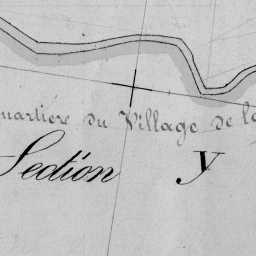 uartière du Village de la
Section Y